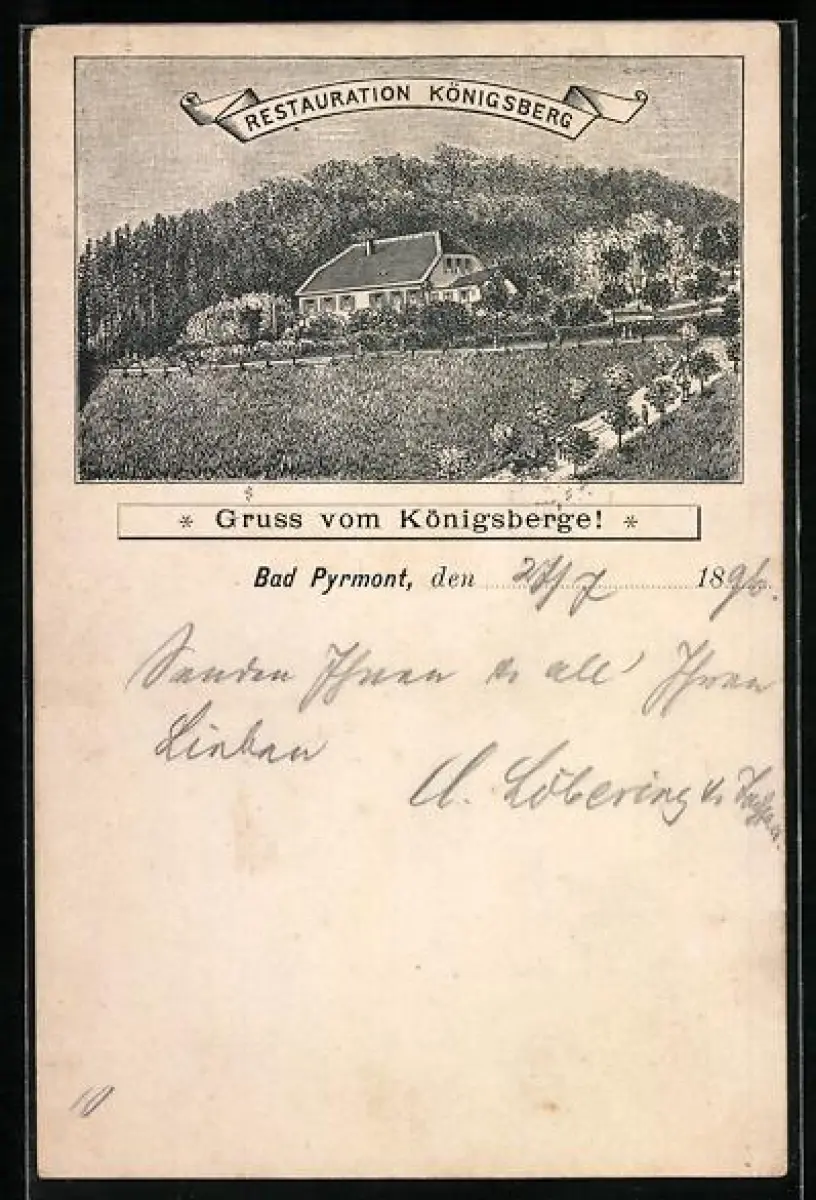 RESTAURATION KÖNIGSBERG
* Gruss vom Königsberge! *
Bad Pyrmont, den 27/7 1896.
Senden Ihnen u. all' Ihren
Lieben
Löbering u.
10